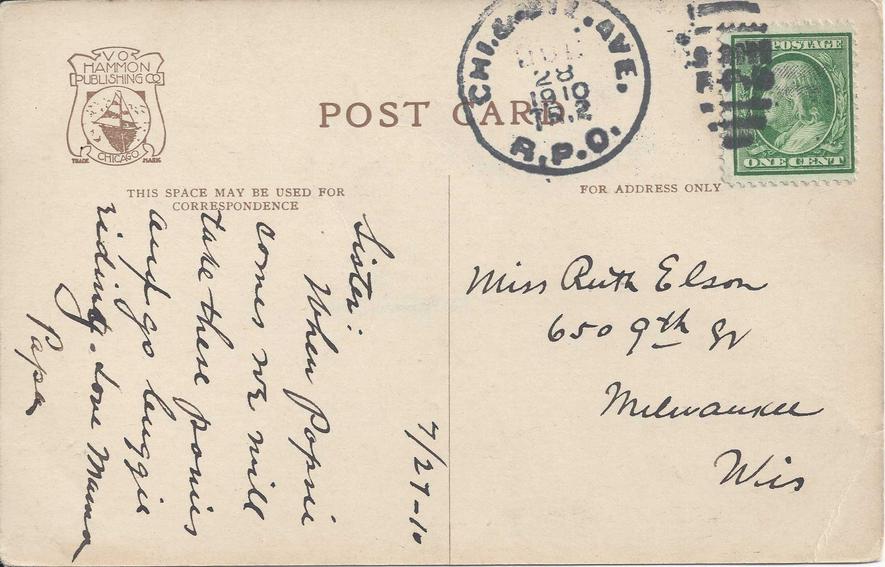 V O
HAMMON
PUBLISHING CO
TRADE CHICAGO MARK
POST CARD
CHI. & MIL. AVE.
28
1910
TR. 2
R.P.O.
POSTAGE
ONE CENT
THIS SPACE MAY BE USED FOR
CORRESPONDENCE
FOR ADDRESS ONLY
7/27-10
Sister:
When Popsie
comes we will
take these ponies
and go buggie
riding. Love Mama
Papa
Miss Ruth Elson
650 9th St
Milwaukee
Wis